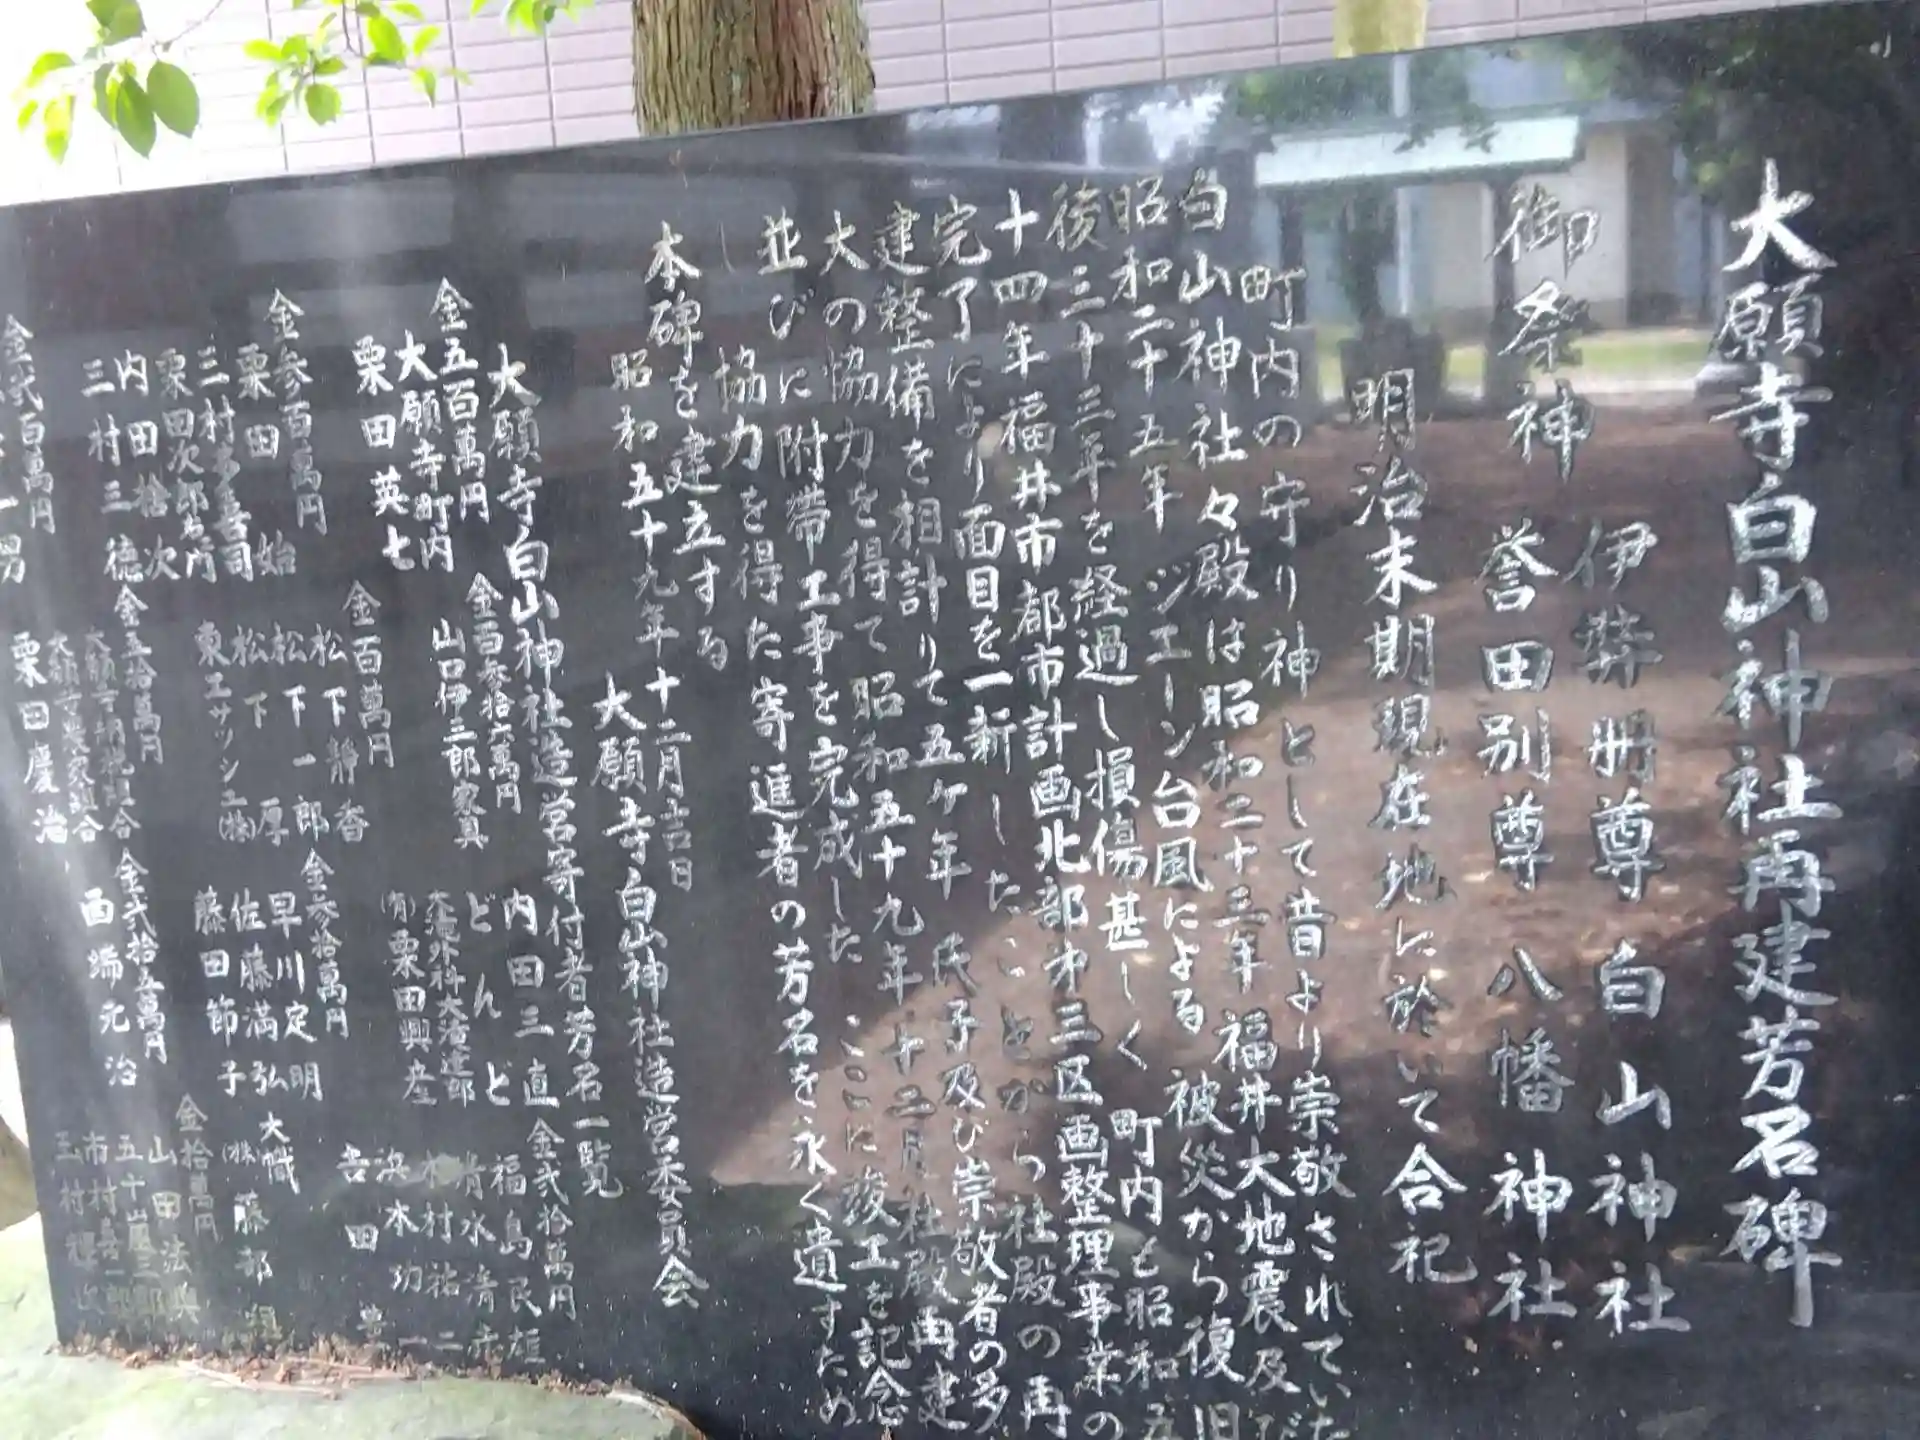 大願寺白山神社再建芳名碑
御祭神
伊弉冊尊 白山神社
誉田別尊 八幡神社
明治末期現在地に於いて合祀
町内の守り神として昔より崇敬されていた
白山神社々殿は昭和二十三年 福井大地震及び
昭和二十五年 ジエーン台風による 被災から復旧
後三十三年を経過し損傷甚しく 町内も昭和五
十四年福井市都市計画北部才三区画整理事業の
完了により面目を一新したことから社殿の再
建整備を相計りて五ヶ年 氏子及び崇敬者の多
大の協力を得て昭和五十九年十二月社殿再建
並びに附帯工事を完成した ここに竣工を記念
し 協力を得た寄進者の芳名を永く遺すため
本碑を建立する
昭和五十九年十二月吉日
大願寺白山神社造営委員会
大願寺白山神社造営寄付者芳名一覧
金五百萬円
大願寺町内
栗田英七
金参百萬円
栗田 始
三村多喜司
栗田次郎右ヱ門
内田捨次
三村三德
金弐百萬円
金百参拾六萬円
山口伊三郎家具
金百萬円
松下靜香
松下一郎
松下 厚
東工サッシ工㈱
金五拾萬円
大願寺農家組合
栗田慶治
内田三直
どんど
大滝外科大滝達郎
(有)栗田興産
金参拾萬円
早川定明
佐藤満弘
藤田節子
金弐拾五萬円
西端元治
金弐拾萬円
福島民雄
清水清
木村祐二
浜本功一
吉田豊
大幟
(株)藤部組
金拾萬円
山田法興
五十嵐三郎
市村喜一郎